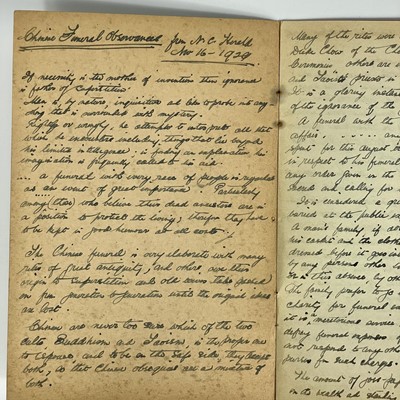 Chinese Funeral Observances from N.C. Herald
Nov 16 - 1929
If necessity is the mother of invention then ignorance
is father of superstition.
Man is, by nature, inquisitive and likes to probe into any-
thing that is surrounded with mystery.
Rightly or wrongly, he attempts to interpret all that
which he encounters including things that lie beyond
his limited intelligence: in finding an explanation his
imagination is frequently called to his aid.
.... a funeral with every race of people is regarded
as an event of great importance. Particularly
among those who believe their dead ancestors are in
a position to protect the living; therefore they have
to be kept in good humour at all costs.
The Chinese funeral is very elaborate with many
rites of great antiquity, and others, owe their
origin to superstition and old saws
from generation to generation until the original
are lost.
Chinese are never too sure which of the two
cults Buddhism and Taoism, is the proper one
to espouse, and to be on the safe side, they accept
both, so that Chinese obsequies are a mixture of
both.
Many of the rites were
Duke Chow of the Ch
Ceremonies others are
and Taoist priests in
It is a glaring instance
of the ignorance of the
A funeral with the
affair. ..... any
spent for the august
in respect to his funeral
any order given in the
board and calling for
It is considered a
buried at the public
A man's family if
his casket and the clothes
dressed before it goes in
by any persons other
The family prefer to go
charity for funeral
it is "meritorious service
defray funeral expenses of
not respond to any other
parties for such charges.
The amount of